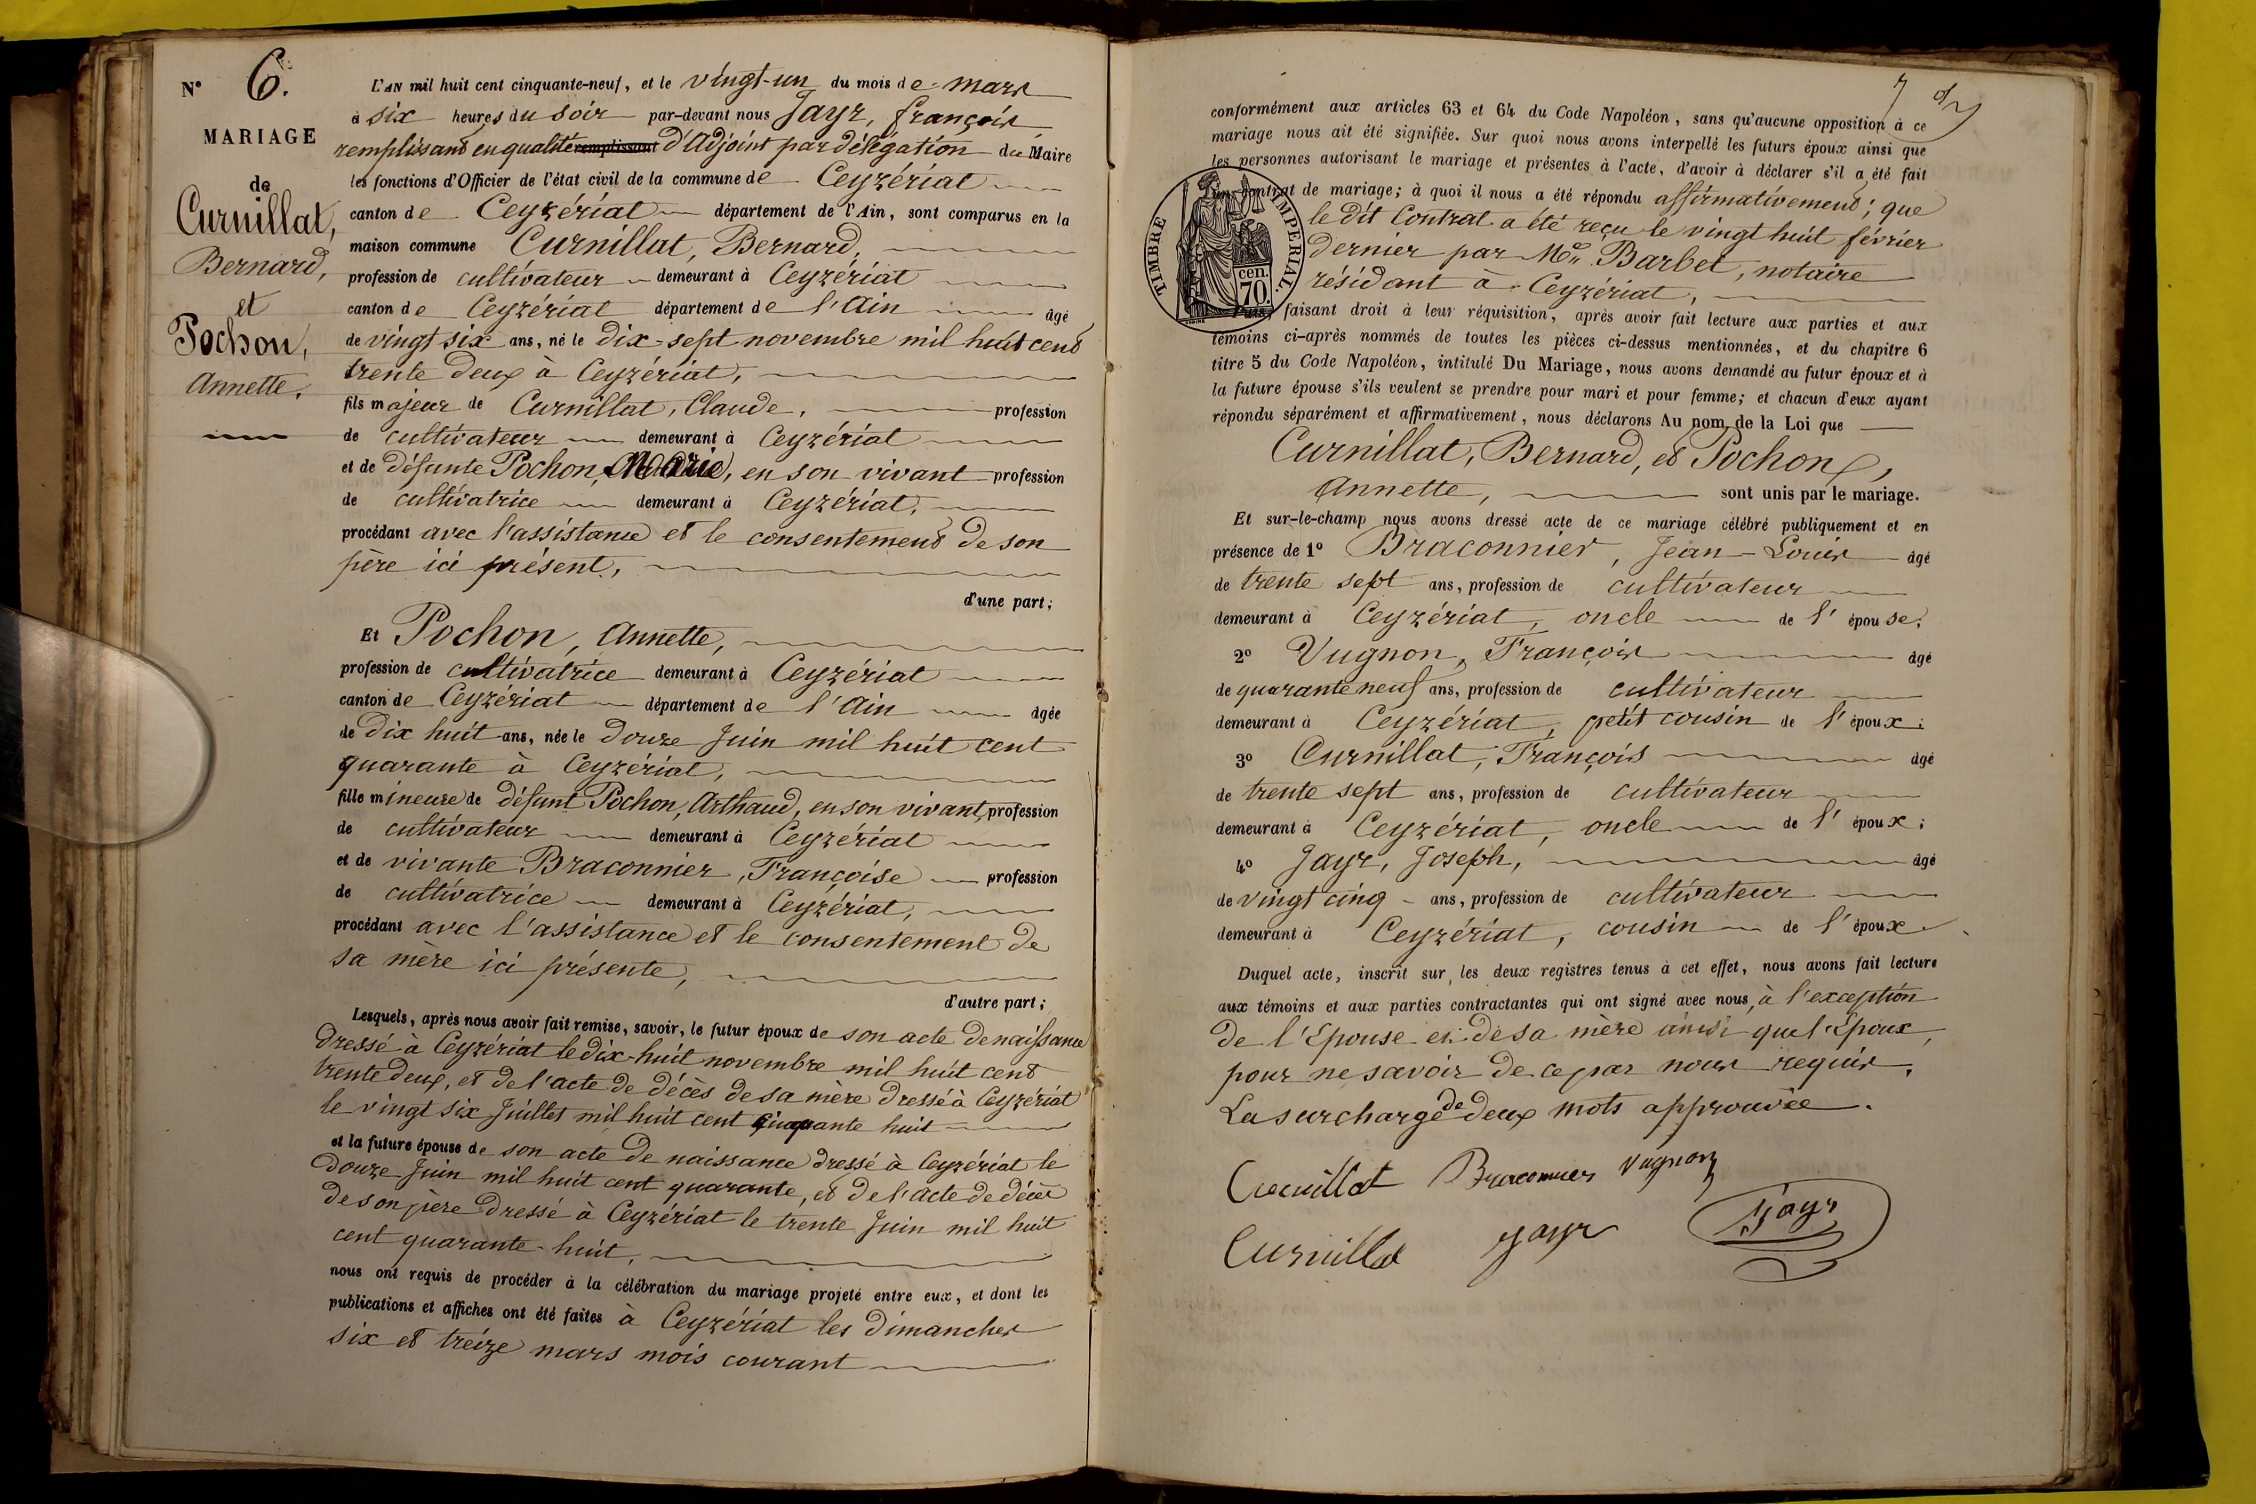 N° 6.
MARIAGE
de
Curnillat,
Bernard,
et
Pochon,
Annette.
L'AN mil huit cent cinquante-neuf, et le vingt-un du mois de mars
à six heures du soir par-devant nous Jayr, François
remplissant en qualité remplissant d'Adjoint par délégation du Maire
les fonctions d'Officier de l'état civil de la commune de Ceyzériat
canton de Ceyzériat département de l'Ain, sont comparus en la
maison commune Curnillat, Bernard,
profession de cultivateur demeurant à Ceyzériat
canton de Ceyzériat département de l'Ain âgé
de vingt six ans, né le Dix-sept novembre mil huit cent
trente deux à Ceyzériat,
fils majeur de Curnillat, Claude, profession
de cultivateur demeurant à Ceyzériat
et de défunte Pochon, Marie, en son vivant profession
de cultivatrice demeurant à Ceyzériat,
procédant avec l'assistance et le consentement de son
père ici présent,
d'une part;
Et Pochon, Annette,
profession de cultivatrice demeurant à Ceyzériat
canton de Ceyzériat département de l'Ain âgée
de Dix huit ans, née le Douze Juin mil huit cent
quarante à Ceyzériat,
fille mineure de défunt Pochon, Arthaud, en son vivant, profession
de cultivateur demeurant à Ceyzériat
et de vivante Braconnier, Françoise profession
de cultivatrice demeurant à Ceyzériat,
procédant avec l'assistance et le consentement de
sa mère ici présente,
d'autre part;
Lesquels, après nous avoir fait remise, savoir, le futur époux de son acte de naissance
dressé à Ceyzériat le dix-huit novembre mil huit cent
trente deux, et de l'acte de décès de sa mère dressé à Ceyzériat
le vingt six Juillet mil huit cent cinquante huit
et la future épouse de son acte de naissance dressé à Ceyzériat le
douze Juin mil huit cent quarante, et de l'acte de décès
de son père dressé à Ceyzériat le trente Juin mil huit
cent quarante-huit,
nous ont requis de procéder à la célébration du mariage projeté entre eux, et dont les
publications et affiches ont été faites à Ceyzériat les dimanches
six et treize mars mois courant
7
conformément aux articles 63 et 64 du Code Napoléon, sans qu'aucune opposition à ce
mariage nous ait été signifiée. Sur quoi nous avons interpellé les futurs époux ainsi que
les personnes autorisant le mariage et présentes à l'acte, d'avoir à déclarer s'il a été fait
un contrat de mariage; à quoi il nous a été répondu affirmativement; que
le dit Contrat a été reçu le vingt huit février
dernier par Me Barbet, notaire
résidant à Ceyzériat,
TIMBRE IMPERIAL.
cen.
70.
Puis, faisant droit à leur réquisition, après avoir fait lecture aux parties et aux
témoins ci-après nommés de toutes les pièces ci-dessus mentionnées, et du chapitre 6
titre 5 du Code Napoléon, intitulé Du Mariage, nous avons demandé au futur époux et à
la future épouse s'ils veulent se prendre pour mari et pour femme; et chacun d'eux ayant
répondu séparément et affirmativement, nous déclarons Au nom de la Loi que
Curnillat, Bernard, et Pochon,
Annette, sont unis par le mariage.
Et sur-le-champ nous avons dressé acte de ce mariage célébré publiquement et en
présence de 1° Braconnier, Jean-Louis âgé
de trente sept ans, profession de cultivateur
demeurant à Ceyzériat, oncle de l'épouse;
2° Vugnon, François âgé
de quarante neuf ans, profession de cultivateur
demeurant à Ceyzériat, petit cousin de l'époux;
3° Curnillat, François âgé
de trente sept ans, profession de cultivateur
demeurant à Ceyzériat, oncle de l'époux;
4° Jayr, Joseph, âgé
de vingt cinq ans, profession de cultivateur
demeurant à Ceyzériat, cousin de l'époux.
Duquel acte, inscrit sur les deux registres tenus à cet effet, nous avons fait lecture
aux témoins et aux parties contractantes qui ont signé avec nous, à l'exception
de l'Epouse et de sa mère ainsi que l'Epoux,
pour ne savoir de ce par nous requis.
La surcharge de deux mots approuvée.
Curnillat Braconnier Vugnon
Curnillat Jayr Jayr